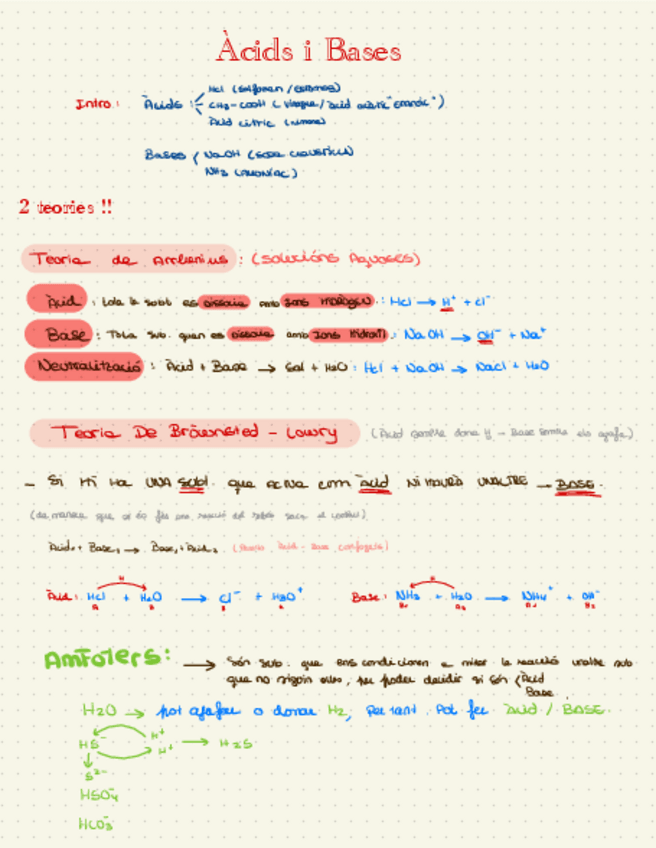 Àcids i Bases
Intro: Àcids: HCl (Salfuman / estómac)
CH3-COOH (Vinagre / àcid acètic "etanoic")
Àcid cítric (
Bases / NaOH (sosa càustica)
NH3 (amoníac)
2 teories !!
Teoria de Arrhenius: (solucións Aquoses)
Àcid: tota la subt es dissocia amb Ions Hidrògen.: HCl → H⁺ + Cl⁻
Base: Tota sub. quan es dissocia amb Ions Hidroxil: NaOH → OH⁻ + Na⁺
Neutralització: Àcid + Base → Sal + H2O: HCl + NaOH → NaCl + H2O
Teoria De Bröwnsted - Lowry (Àcid sempre dona - Base sempre els agafa)
- Si Hi Ha UNA subt. que actua com àcid Ni HAURÀ UNALTRE → BASE.
(de manera que si és fes una reacció del
Àcid1 + Base2 → Base1 + Àcid2. (Àcid - Base conjugats)
H H
Àcid: HCl + H2O → Cl⁻ + H3O⁺ Base: NH3 + H2O → NH4⁺ + OH⁻
Amfòters: → Són sub. que ens condicionen a mirar la reacció unaltre sub
que no siguin elles, per poder decidir si són (Àcid
Base.
H2O → pot agafar o donar H2, Per tant. Pot fer àcid / BASE.
HS⁻ H⁺ H⁺ → H2S
S²⁻
HSO4⁻
HCO3⁻